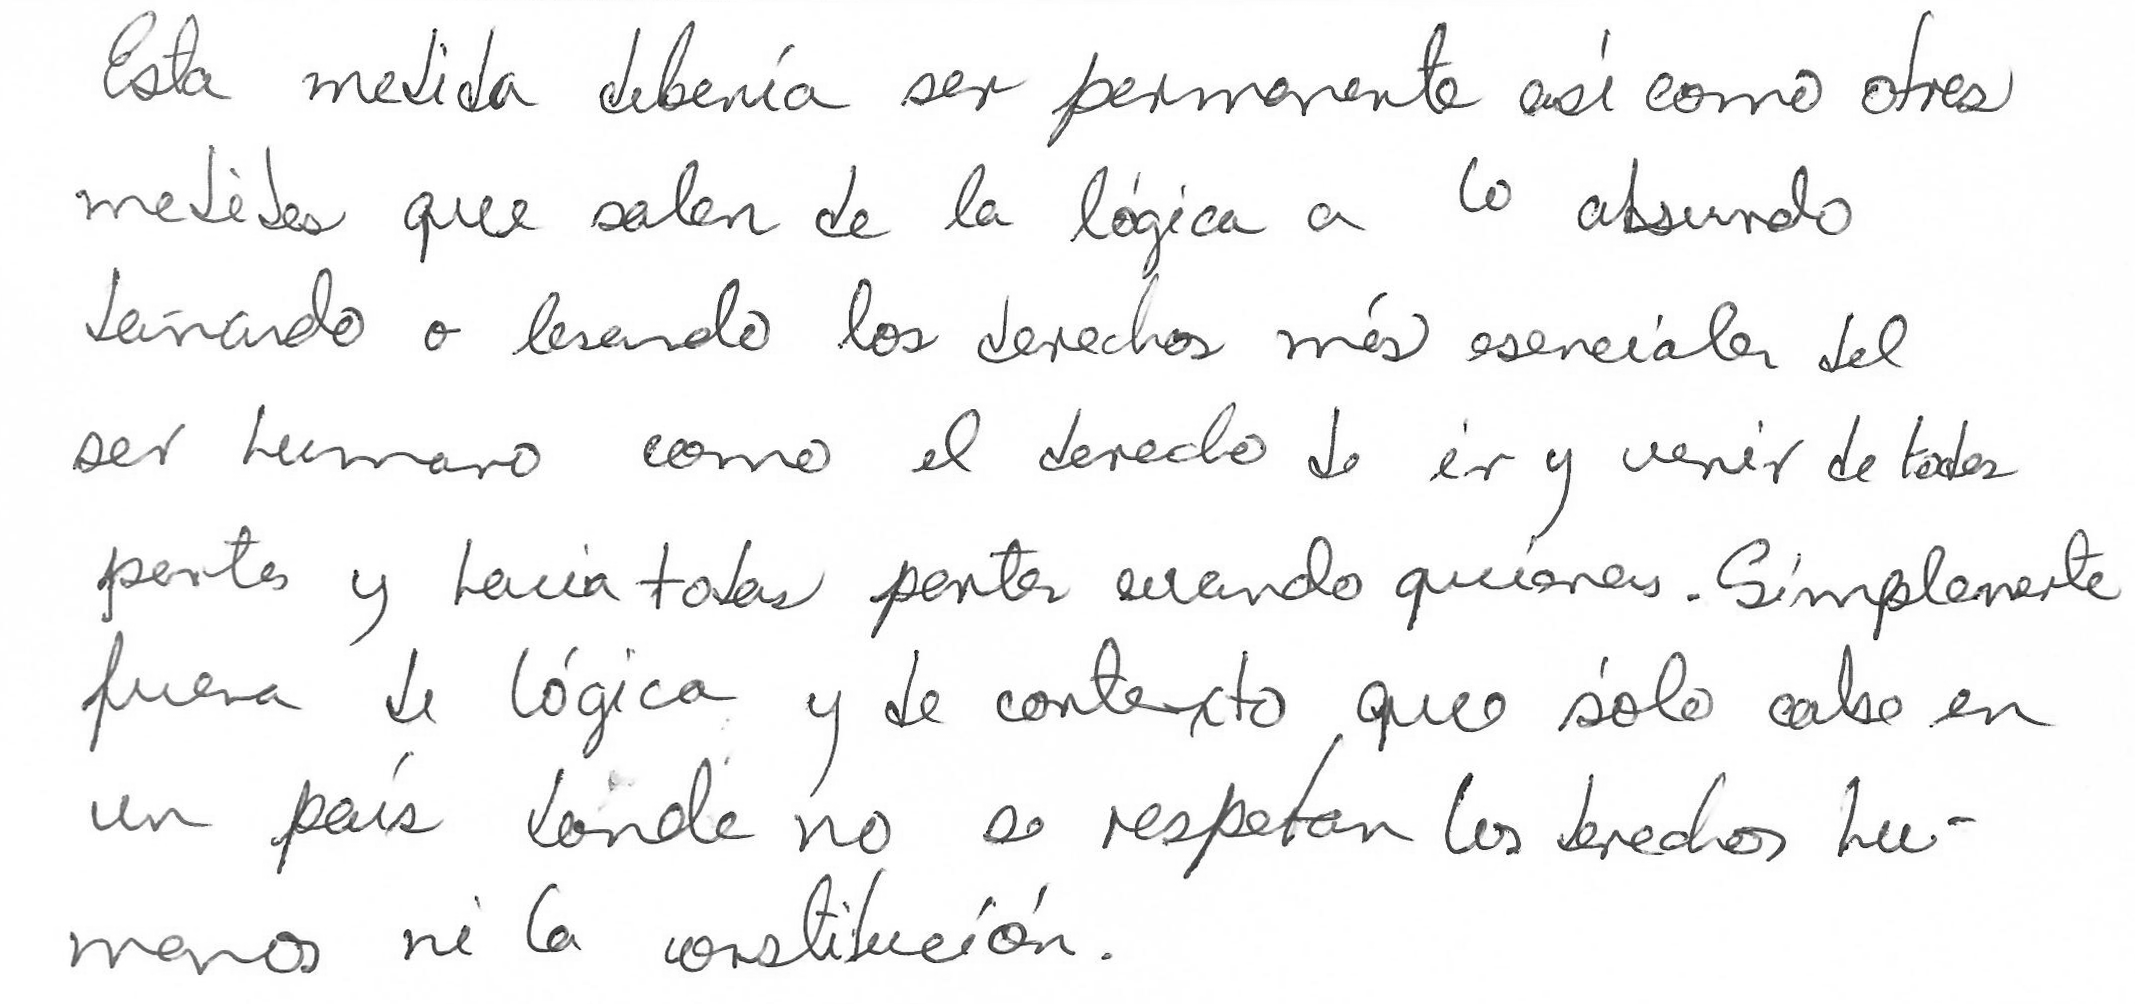 Esta medida debería ser permanente así como otras
medidas que salen de la lógica a lo absurdo
dañando o lesando los derechos más esenciales del
ser humano como el derecho de ir y venir de todas
partes y hacia todas partes cuando quieras. Simplemente
fuera de lógica y de contexto que sólo cabe en
un país donde no se respetan los derechos hu-
manos ni la constitución.